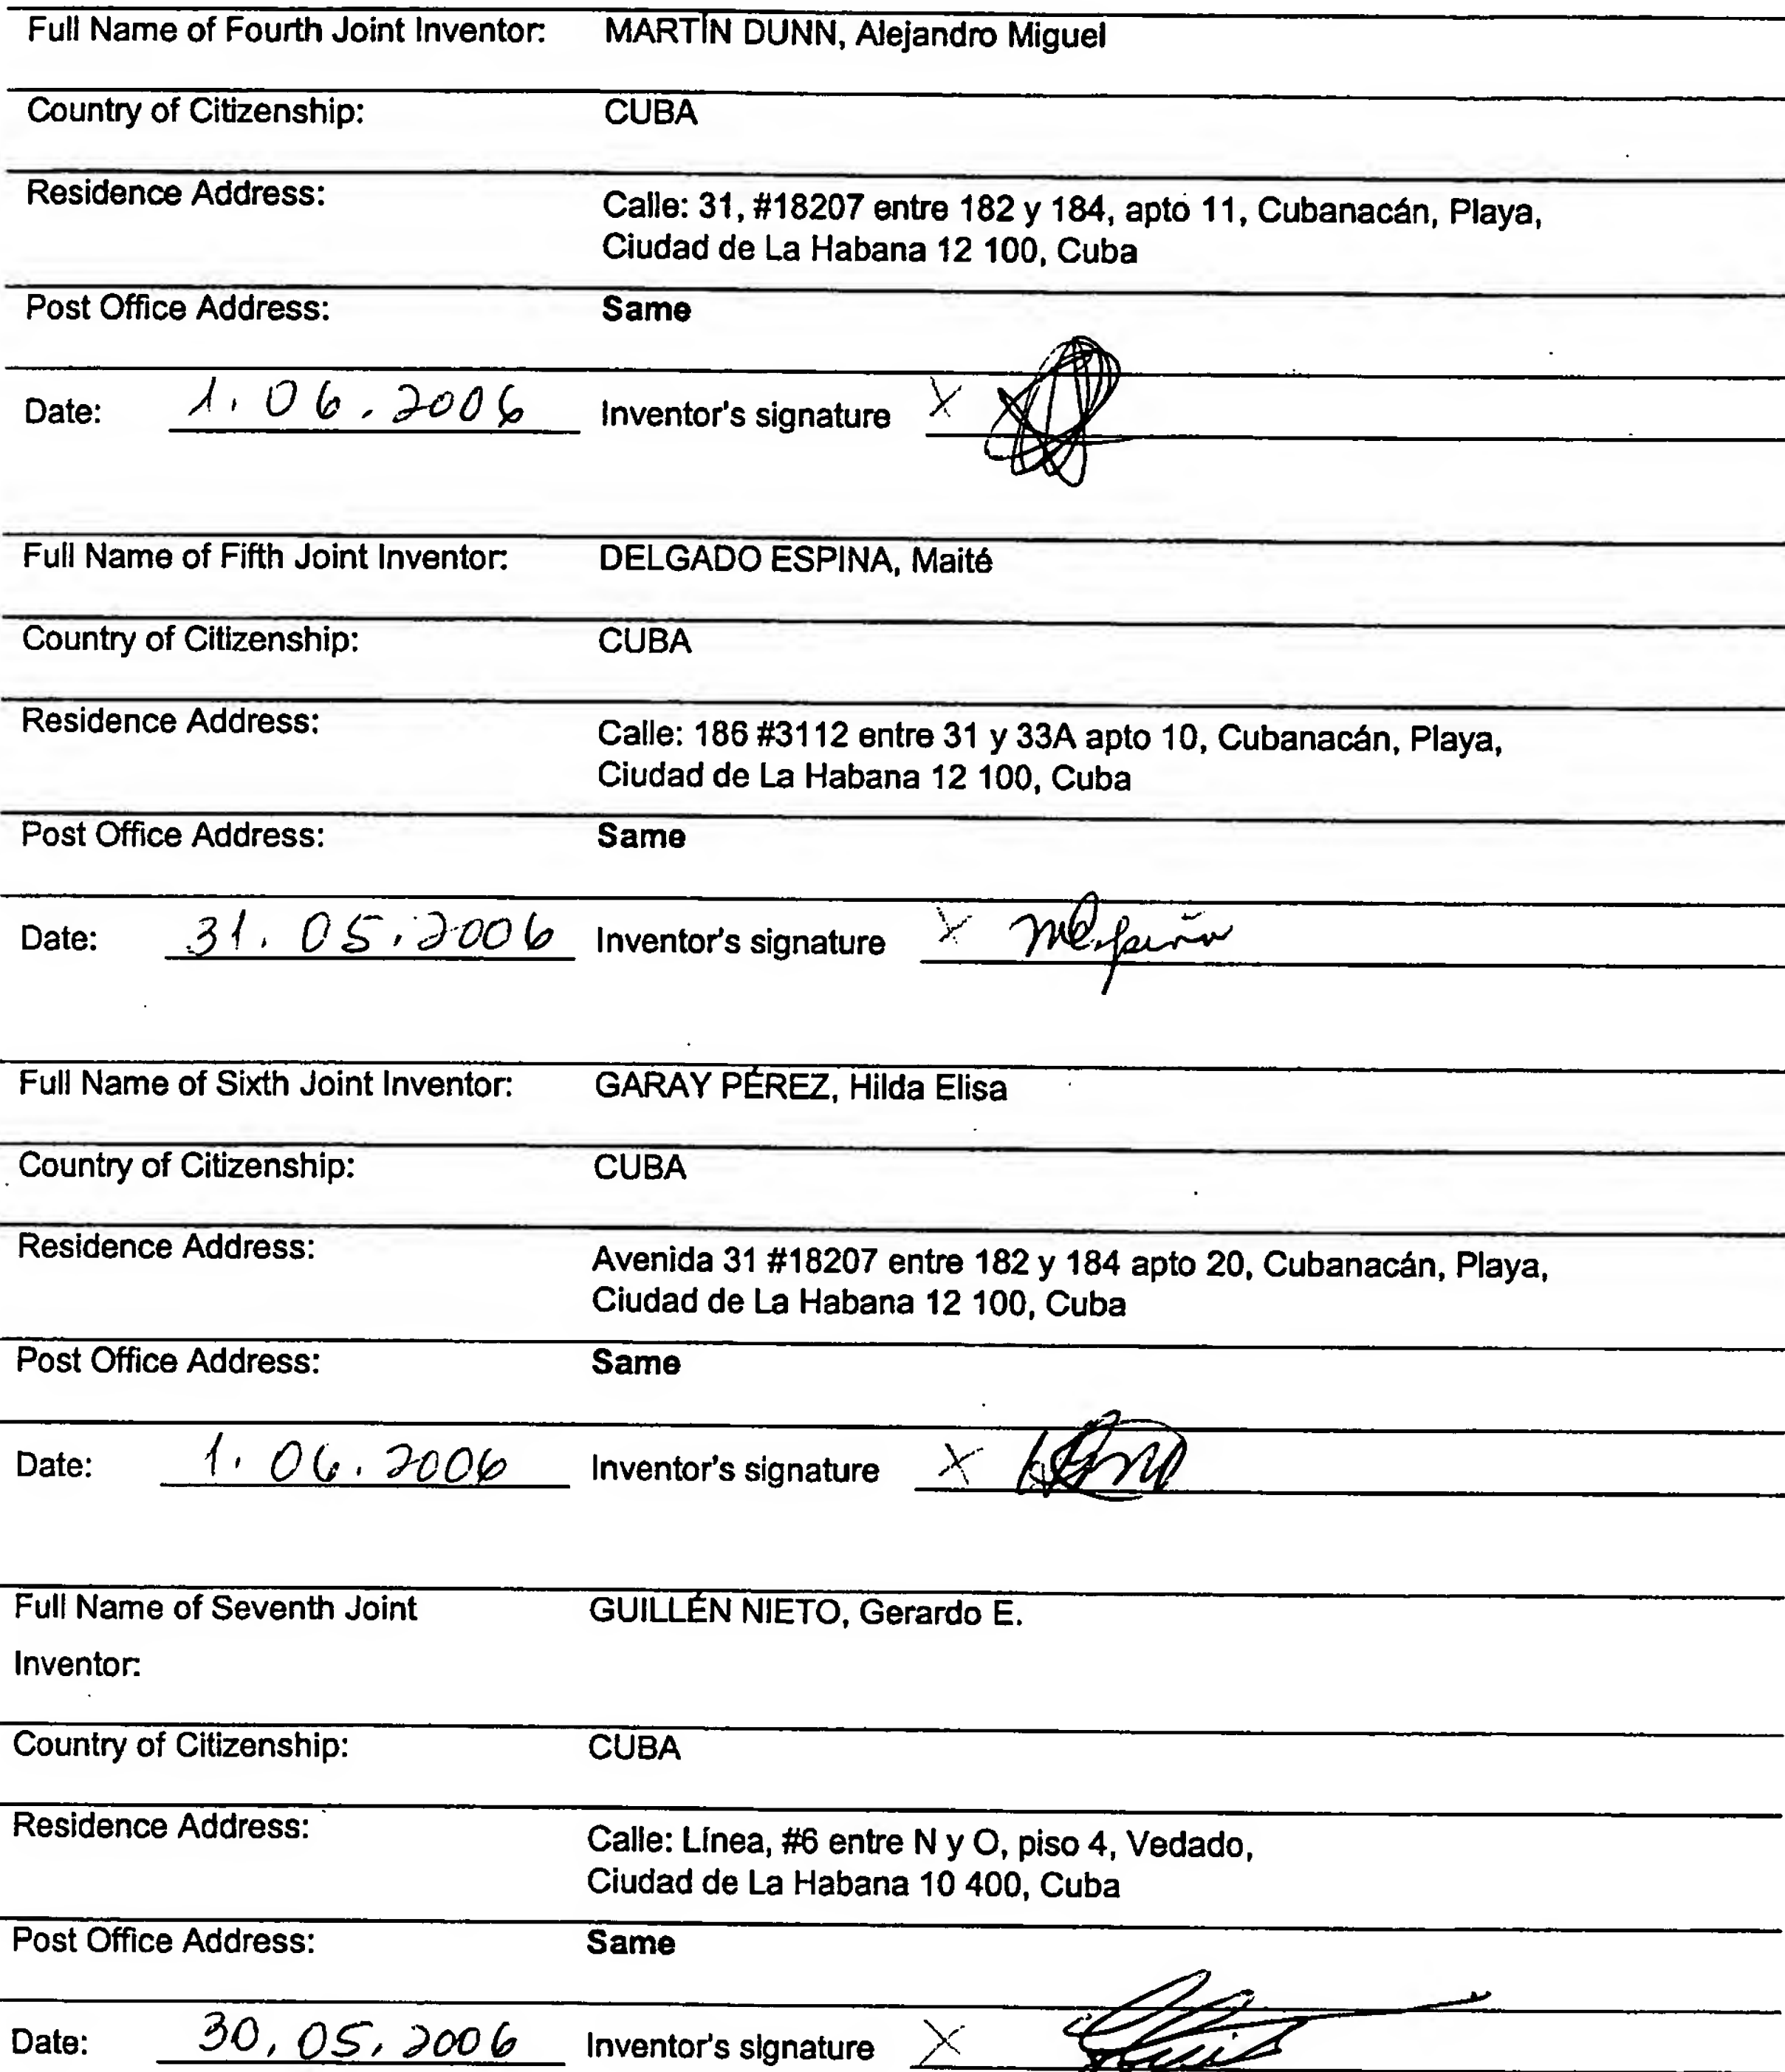 Full Name of Fourth Joint Inventor: MARTÍN DUNN, Alejandro Miguel
Country of Citizenship: CUBA
Residence Address: Calle: 31, #18207 entre 182 y 184, apto 11, Cubanacán, Playa,
Ciudad de La Habana 12 100, Cuba
Post Office Address: Same
Date: 1.06.2006 Inventor's signature X
Full Name of Fifth Joint Inventor: DELGADO ESPINA, Maité
Country of Citizenship: CUBA
Residence Address: Calle: 186 #3112 entre 31 y 33A apto 10, Cubanacán, Playa,
Ciudad de La Habana 12 100, Cuba
Post Office Address: Same
Date: 31.05.2006 Inventor's signature X
Full Name of Sixth Joint Inventor: GARAY PÉREZ, Hilda Elisa
Country of Citizenship: CUBA
Residence Address: Avenida 31 #18207 entre 182 y 184 apto 20, Cubanacán, Playa,
Ciudad de La Habana 12 100, Cuba
Post Office Address: Same
Date: 1.06.2006 Inventor's signature X
Full Name of Seventh Joint GUILLÉN NIETO, Gerardo E.
Inventor:
Country of Citizenship: CUBA
Residence Address: Calle: Línea, #6 entre N y O, piso 4, Vedado,
Ciudad de La Habana 10 400, Cuba
Post Office Address: Same
Date: 30.05.2006 Inventor's signature X